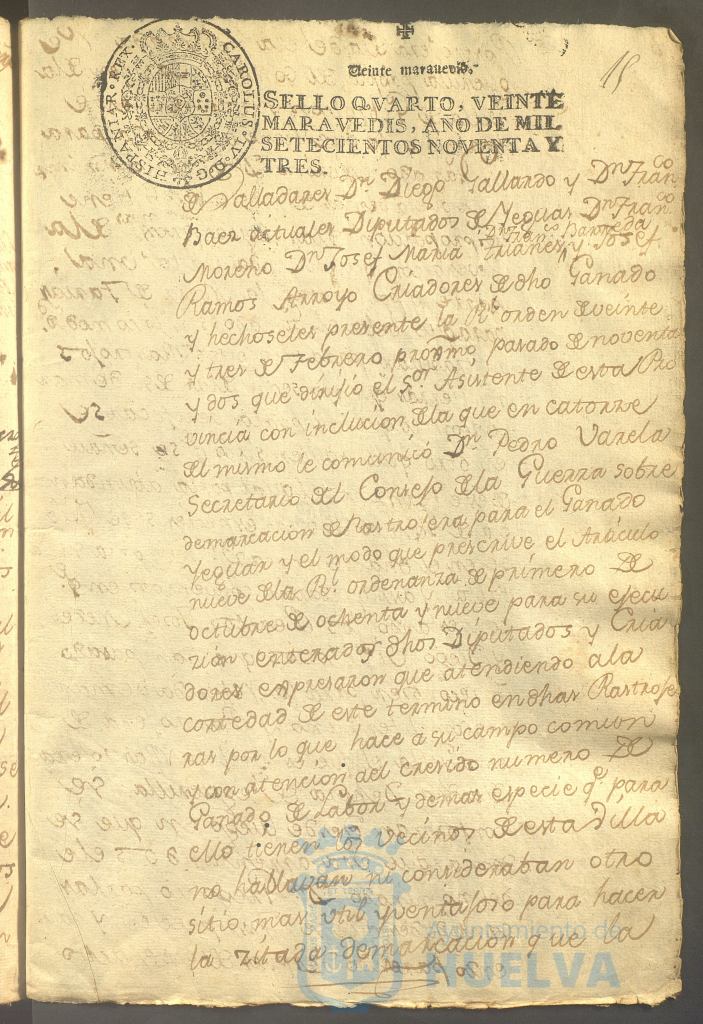 15
Veinte marauedis.
CAROLUS·IV·D·G·HISPANIAR·REX·
SELLO QVARTO, VEINTE
MARAVEDIS, AÑO DE MIL
SETECIENTOS NOVENTA Y
TRES.
Valladares Dn Diego Gallardo y Dn Franco
Baez actuales Diputados de Yeguas Dn Franco
Dn Franco Barreda
Moreno Dn Josef Maria Trianes y Josef
Ramos Arroyo Criadores de dho Ganado
y hechoseles presente la Rl orden de veinte
y tres de Febrero proximo pasado de noventa
y dos que dirijio el Sor Asistente de esta Pro
vincia con inclucion de la que en catorze
del mismo le comunicó Dn Pedro Varela
Secretario del Consejo de la Guerra sobre
demarcacion de Rastrojera para el Ganado
Yeguar y el modo que prescrive el Articulo
nueve de la Rl ordenanza de primero de
octubre de ochenta y nueve para su ejecu
zión enterados dhos Diputados y Cria
dores expresaron que atendiendo a la
cortedad de este termino en dhas Rastroje
ras por lo que hace a su campo comun
y con atencion al cresido numero de
Ganado de Labor y demas especie qe para
ello tienen los vecinos de esta Villa
no hallavan ni consideraban otro
sitio mas util y ventajoso para hacer
la zitada demarcacion que la
Ayuntamiento de
HUELVA